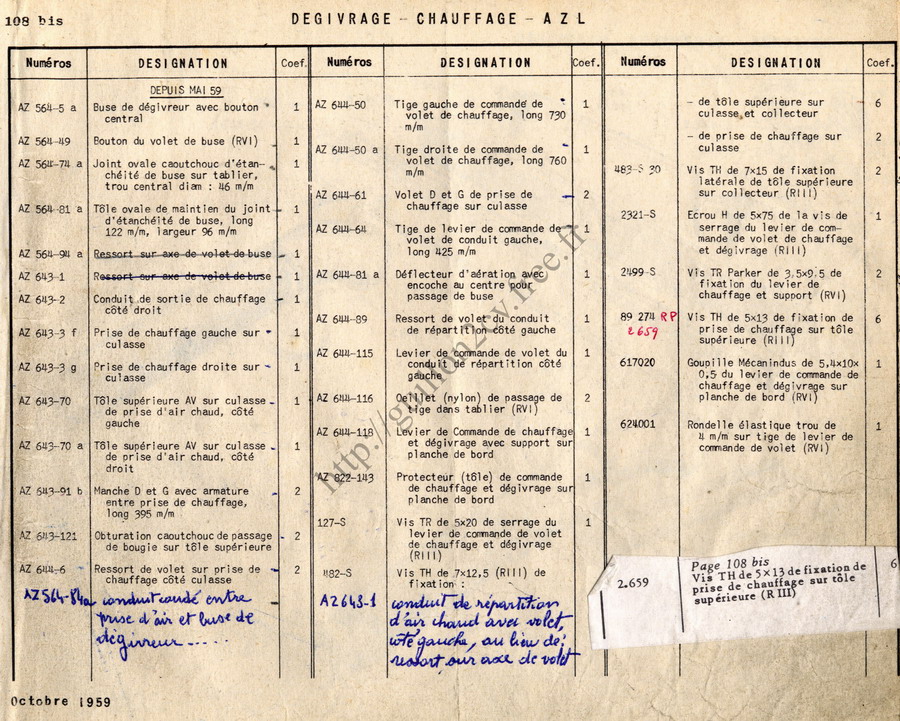 108 bis
DEGIVRAGE - CHAUFFAGE - AZL
Numéros DESIGNATION Coef.
DEPUIS MAI 59
AZ 564-5 a Buse de dégivreur avec bouton central 1
AZ 564-49 Bouton du volet de buse (RVI) 1
AZ 564-74 a Joint ovale caoutchouc d'étan-
chéité de buse sur tablier,
trou central diam : 46 m/m 1
AZ 564-81 a Tôle ovale de maintien du joint
d'étanchéité de buse, long
122 m/m, largeur 96 m/m 1
AZ 564-94 Ressort sur axe de volet de buse 1
AZ 643-1 Ressort sur axe de volet de buse 1
AZ 643-2 Conduit de sortie de chauffage
côté droit 1
AZ 643-3 f Prise de chauffage gauche sur
culasse 1
AZ 643-3 g Prise de chauffage droite sur
culasse 1
AZ 643-70 Tôle supérieure AV sur culasse
de prise d'air chaud, côté
gauche 1
AZ 643-70 a Tôle supérieure AV sur culasse
de prise d'air chaud, côté
droit 1
AZ 643-91 b Manche D et G avec armature
entre prise de chauffage,
long 395 m/m 2
AZ 643-121 Obturation caoutchouc de passage
de bougie sur tôle supérieure 2
AZ 644-6 Ressort de volet sur prise de
chauffage côté culasse 2
AZ564-84a conduit coudé entre
prise d'air et buse de
dégivreur -.....
Numéros DESIGNATION Coef.
AZ 644-50 Tige gauche de commandé de
volet de chauffage, long 730
m/m 1
AZ 644-50 a Tige droite de commande de
volet de chauffage, long 760
m/m 1
AZ 644-61 Volet D et G de prise de
chauffage sur culasse 2
AZ 644-64 Tige de levier de commande de
volet de conduit gauche,
long 425 m/m 1
AZ 644-81 a Déflecteur d'aération avec
encoche au centre pour
passage de buse 1
AZ 644-89 Ressort de volet du conduit
de répartition côté gauche 1
AZ 644-115 Levier de commande de volet du
conduit de répartition côté
gauche 1
AZ 644-116 Oeillet (nylon) de passage de
tige dans tablier (RVI) 2
AZ 644-118 Levier de Commande de chauffage
et dégivrage avec support sur
planche de bord 1
AZ 822-143 Protecteur (tôle) de commande
de chauffage et dégivrage sur
planche de bord 1
127-S Vis TR de 5x20 de serrage du
levier de commande de volet
de chauffage et dégivrage
(RIII) 1
482-S Vis TH de 7x12,5 (RIII) de
fixation :
AZ643-1 conduit de répartition
d'air chaud avec volet,
côté gauche, au lieu de:
ressort sur axe de volet
Numéros DESIGNATION Coef.
- de tôle supérieure sur
culasse et collecteur 6
- de prise de chauffage sur
culasse 2
483-S 30 Vis TH de 7x15 de fixation
latérale de tôle supérieure
sur collecteur (RIII) 2
2321-S Ecrou H de 5x75 de la vis de
serrage du levier de com-
mande de volet de chauffage
et dégivrage (RIII) 1
2499-S Vis TR Parker de 3,5x9,5 de
fixation du levier de
chauffage et support (RVI) 2
89 274 RP Vis TH de 5x13 de fixation de
2659 prise de chauffage sur tôle
supérieure (RIII) 6
617020 Goupille Mécanindus de 5,4x10x
0,5 du levier de commande de
chauffage et dégivrage sur
planche de bord (RVI) 1
624001 Rondelle élastique trou de
4 m/m sur tige de levier de
commande de volet (RVI) 1
Page 108 bis
2.659 Vis TH de 5x13 de fixation de
prise de chauffage sur tôle
supérieure (R III) 6
Octobre 1959
http://guillon2cv.free.fr